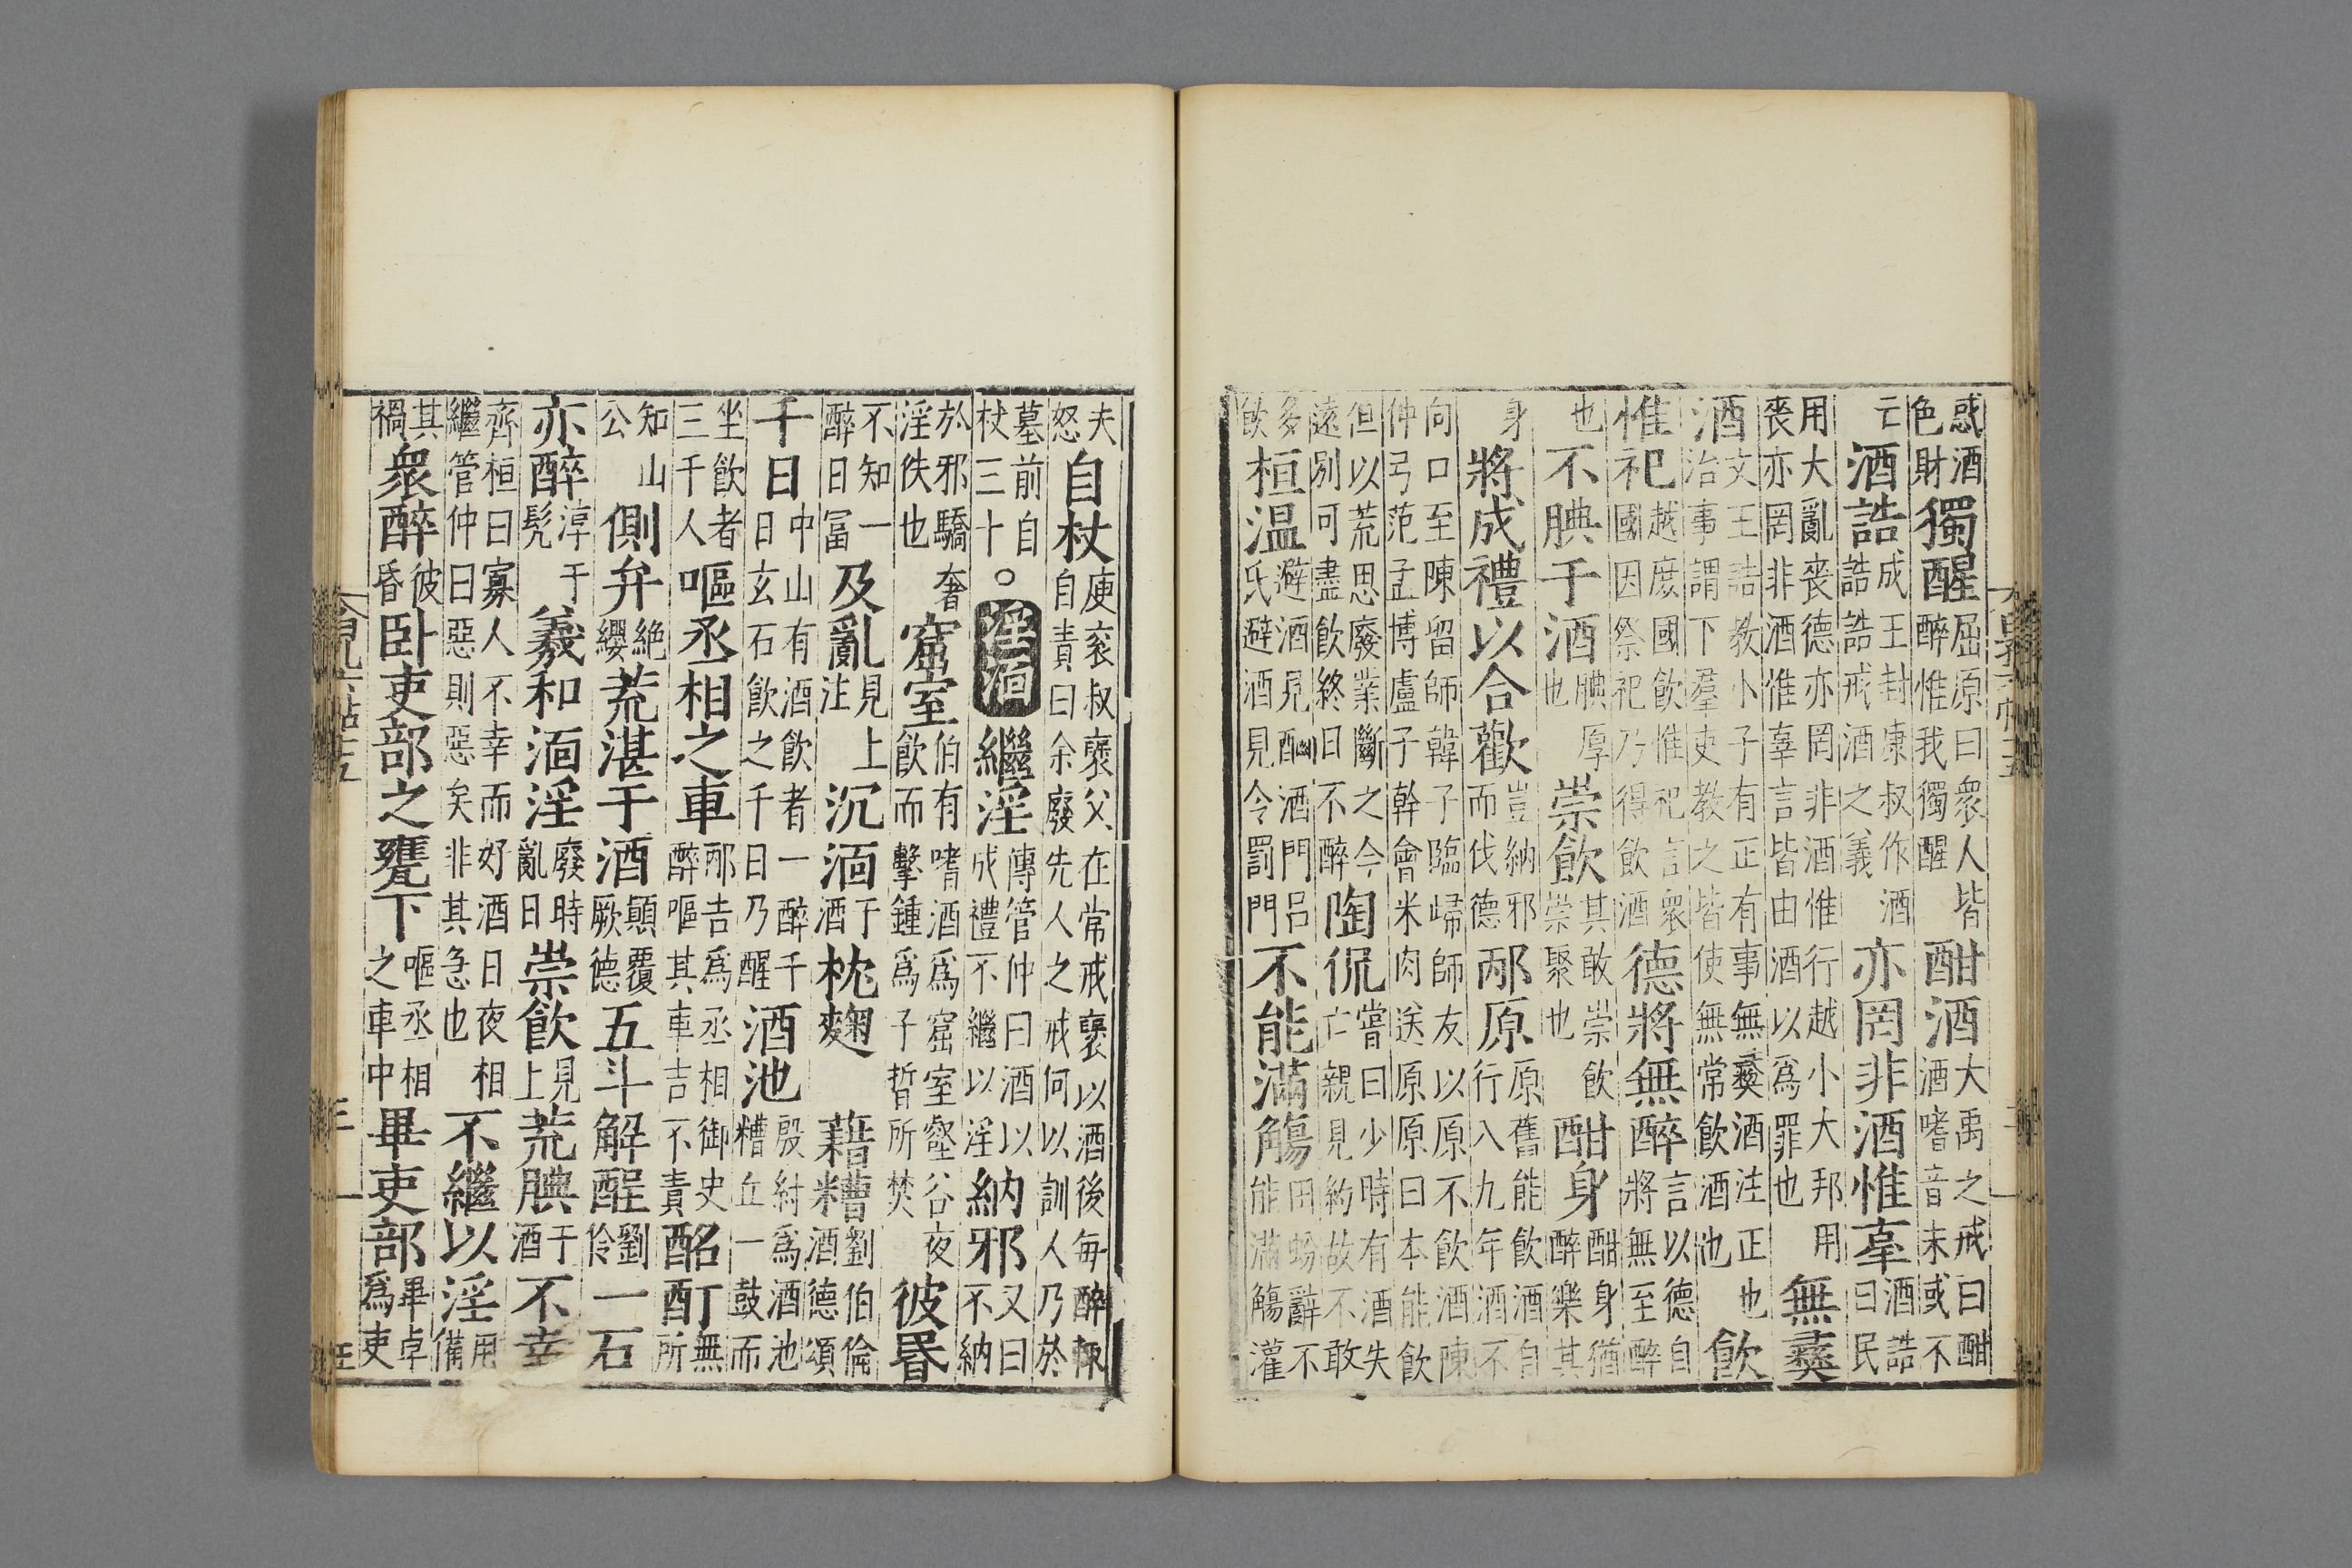 惑酒色財獨醒屈原曰衆人皆醉惟我獨醒酣酒大禹之戒曰酣酒嗜音未或不
亡酒誥成王封康叔作酒誥誥戒酒之義亦罔非酒惟辜酒誥曰民
用大亂喪德亦罔非酒惟行越小大邦用喪亦罔非酒惟辜言皆由酒以爲罪也無彞
酒文王誥教小子有正有事無彞酒注正也治事謂下羣吏教之皆使無常飲酒也飲
惟祀越庶國飲惟祀言衆國因祭祀乃得飲酒德將無醉言以德自將無至醉
也不腆于酒腆厚也崇飲其敢崇飲崇聚也酣身酣身猶醉樂其
身將成禮以合歡豈納邪而伐德邴原原舊能飲酒自行八九年酒不
向口至陳留師韓子臨歸師友以原不飲酒陳仲弓范孟博盧子幹會米肉送原原曰本能飲
但以荒思廢業斷之今遠別可盡飲終日不醉陶侃嘗曰少時有酒失亡親見約故不敢
多飲桓温避酒見酗酒門吕氏避酒見今罰門不能滿觴田蚡辭不能滿觴灌
夫怒自杖庾衮叔褒父在常戒褒以酒後每醉輙自責曰余廢先人之戒何以訓人乃於
墓前自杖三十○淫湎繼淫傳管仲曰酒以成禮不繼以淫納邪又曰不納
於邪驕奢淫佚也窟室伯有嗜酒爲窟室飲而擊鍾爲子晳所焚壑谷夜彼昬
不知一醉日冨及亂見上注沉湎于酒枕麴藉糟劉伯倫酒德頌
千日中山有酒飲者一醉千日玄石飲之千日乃醒酒池殷紂爲酒池糟丘一鼓而
坐飲者三千人嘔丞相之車邴吉爲丞相御史醉嘔其車吉不責酩酊無所
知山公側弁絶纓荒湛于酒顛覆厥德五斗解酲劉伶一石
亦醉淳于髡羲和湎淫廢時亂日崇飲見上荒腆于酒不幸
齊桓曰寡人不幸而好酒日夜相繼管仲曰惡則惡矣非其急也不繼以淫用備
其禍衆醉彼昏卧吏部之甕下嘔丞相之車中畢吏部畢卓爲吏